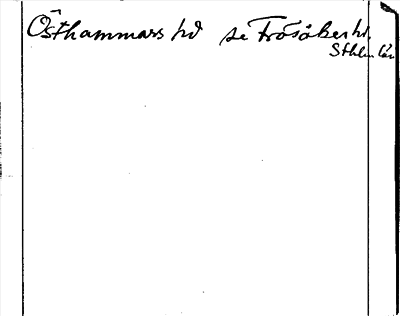 Östhammars hd se Frösåker hd,
Sthlm län